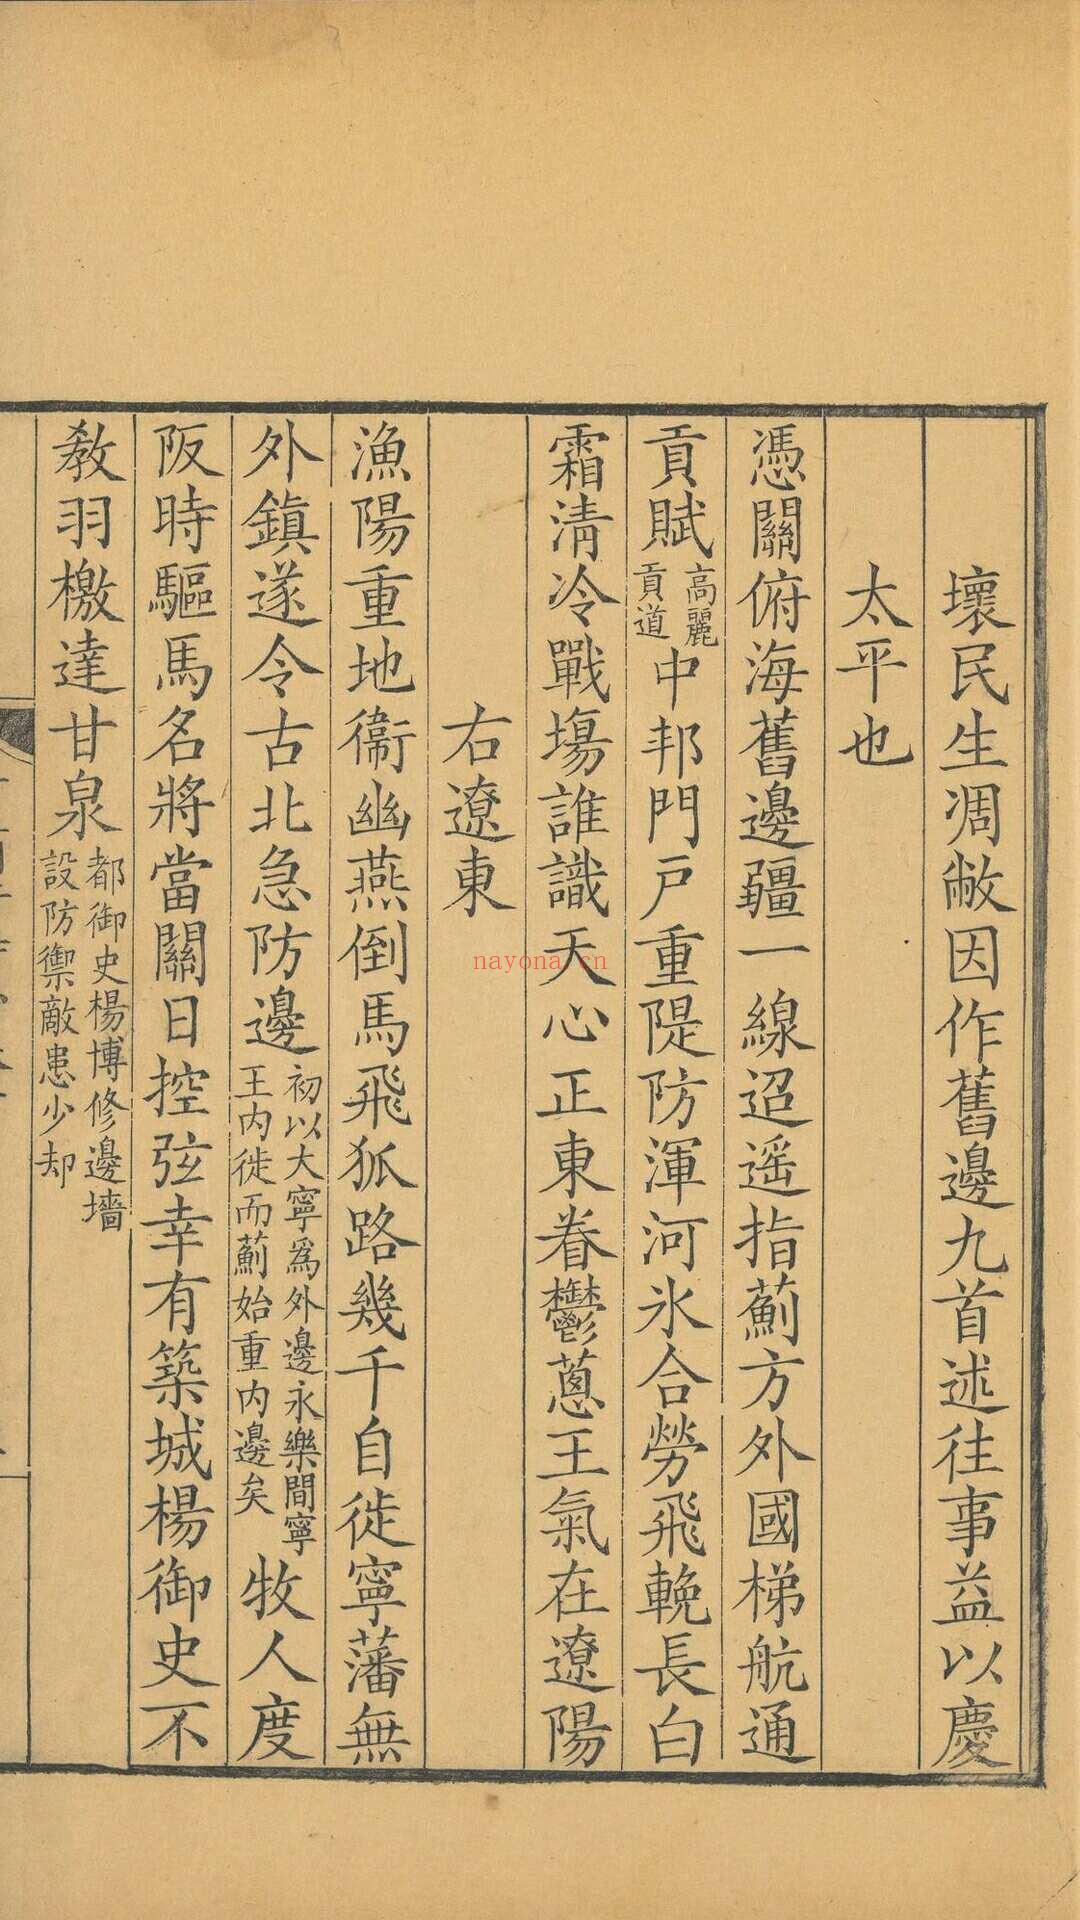 壞民生凋敝因作舊邊九首述往事益以慶
太平也
憑關俯海舊邊疆一線迢遥指薊方外國梯航通
貢賦高麗貢道中邦門戸重隄防渾河氷合勞飛輓長白
霜清冷戰塲誰識天心正東眷鬱蔥王氣在遼陽
右遼東
漁陽重地衞幽燕倒馬飛狐路幾千自徙寧藩無
外鎮遂令古北急防邊初以大寧爲外邊永樂間寧王内徙而薊始重内邊矣牧人度
阪時驅馬名將當關日控弦幸有築城楊御史不
教羽檄達甘泉都御史楊博修邊墻設防禦敵患少却
nayona.cn